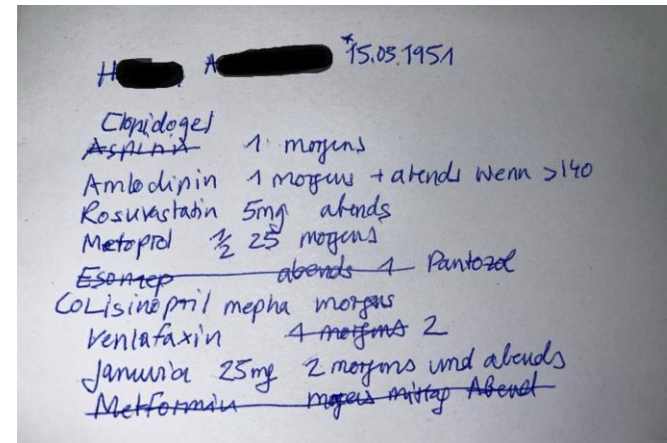 H A *15.03.1951
Clopidogel
Aspirin 1 morgens
Amlodipin 1 morgens + abends wenn >140
Rosuvastatin 5mg abends
Metoprol ½ 25 morgens
Esomep abends 1 Pantozol
CoLisinopril mepha morgens
Venlafaxin 1 morgens 2
Januvia 25mg 2 morgens und abends
Metformin morgens mittag Abend